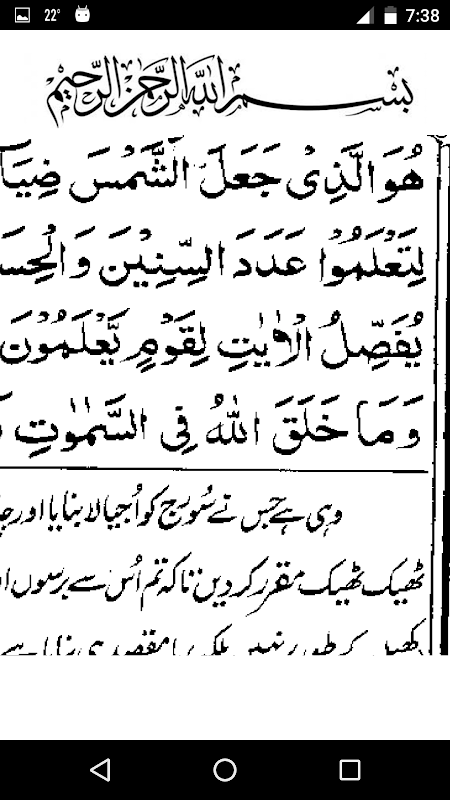 22°
7:38
بسم الله الرحمن الرحيم
هُوَ الَّذِیْ جَعَلَ الشَّمْسَ ضِیَآ
لِتَعْلَمُوْا عَدَدَ السِّنِیْنَ وَالْحِسَ
یُفَصِّلُ الْاٰیٰتِ لِقَوْمٍ یَّعْلَمُوْنَ
وَمَا خَلَقَ اللّٰهُ فِی السَّمٰوٰتِ
وہی ہے جس نے سُورج کو اُجیالا بنایا اور
ٹھیک ٹھیک مقرر کردیں تاکہ تم اُس سے برسوں